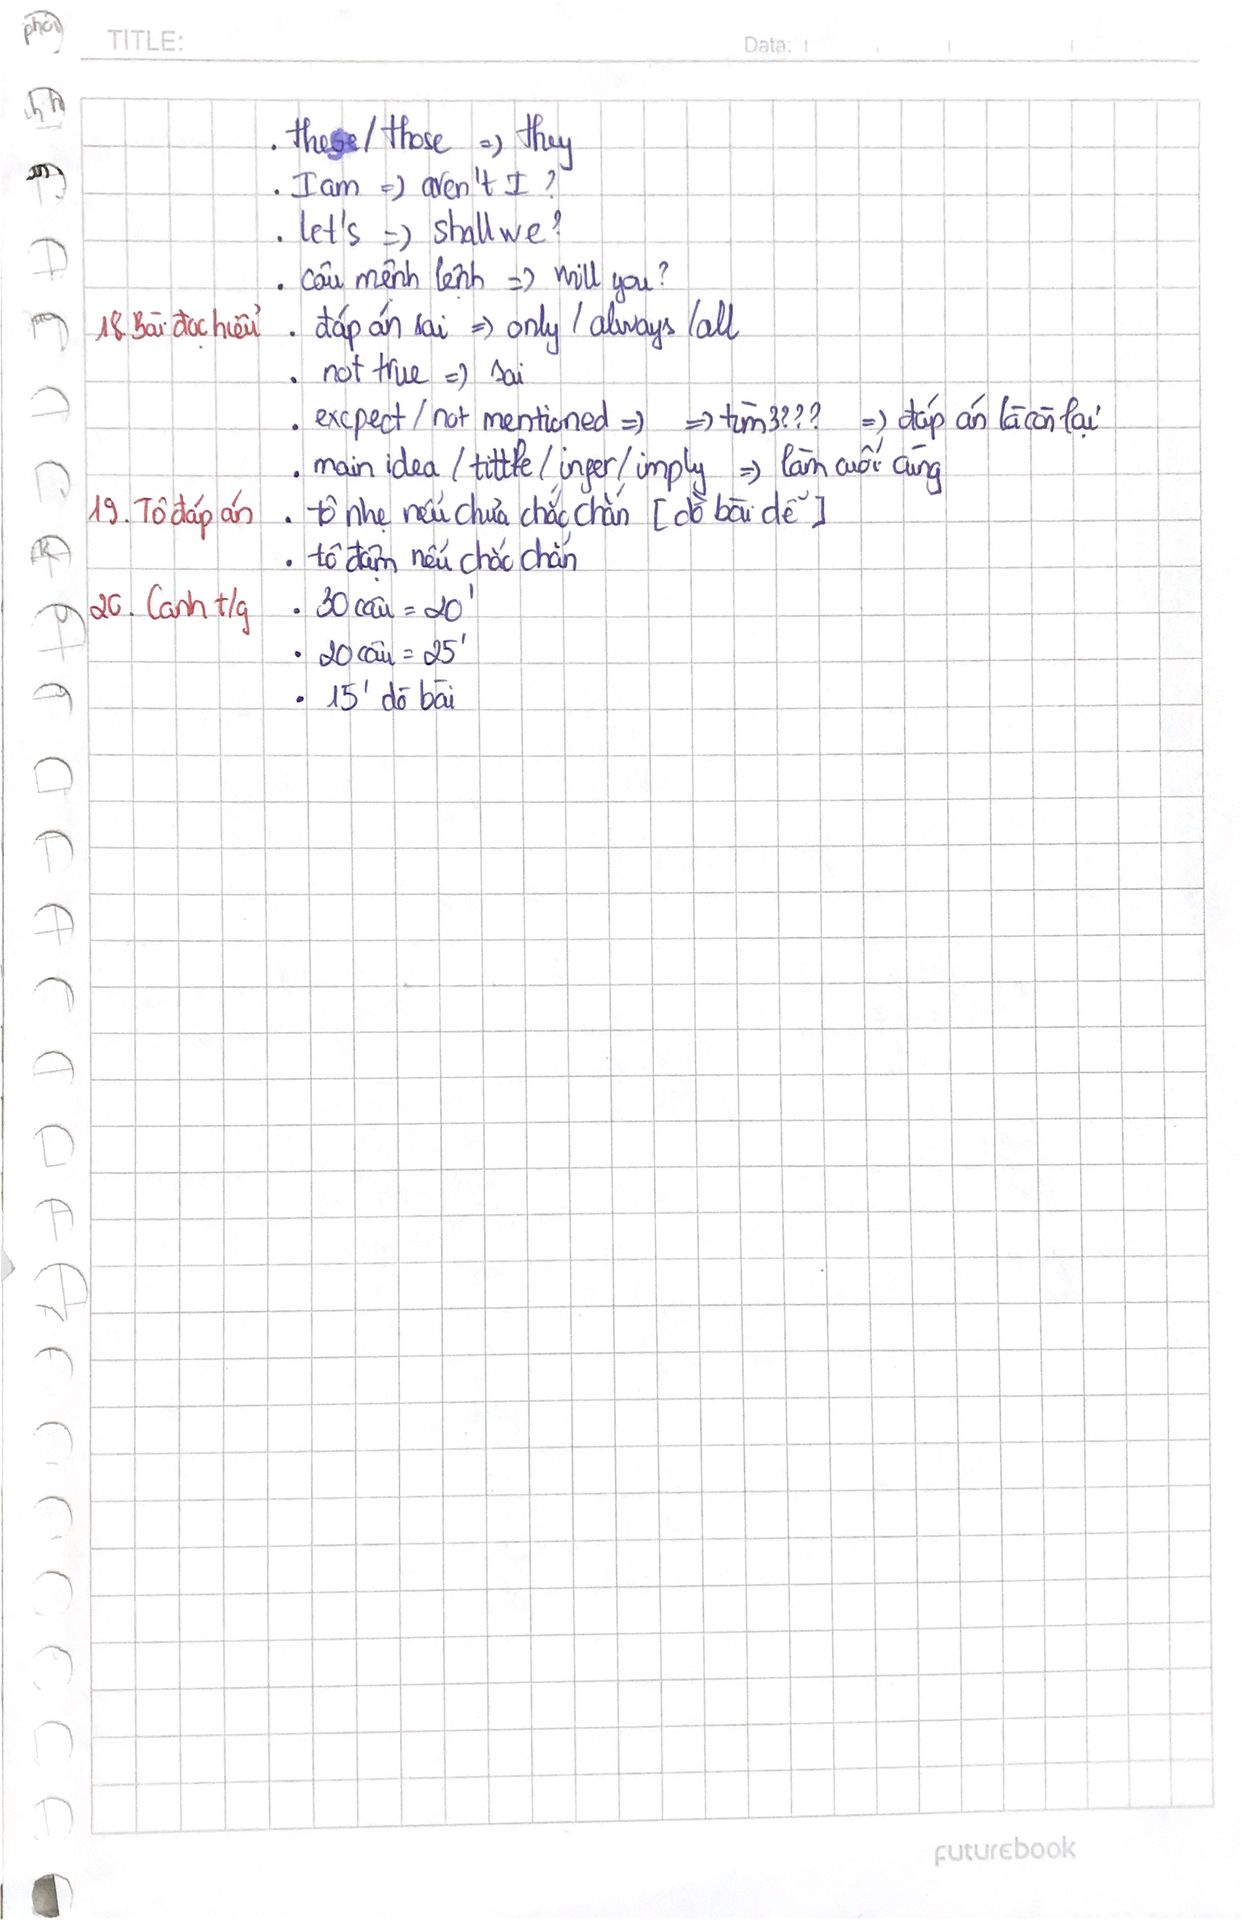 TITLE:
Data:
. these / those => they
. I am => aren't I ?
. let's => shall we ?
. câu mệnh lệnh => will you ?
18. Bài đọc hiểu . đáp án sai => only / always / all
. not true => sai
. excpect / not mentioned => => tìm 3??? => đáp án là còn lại
. main idea / tittle / inger / imply => làm cuối cùng
19. Tô đáp án . tô nhẹ nếu chưa chắc chắn [dò bài dễ]
. tô đậm nếu chắc chắn
20. Canh t/g . 30 câu = 20'
. 20 câu = 25'
. 15' dò bài
futurebook